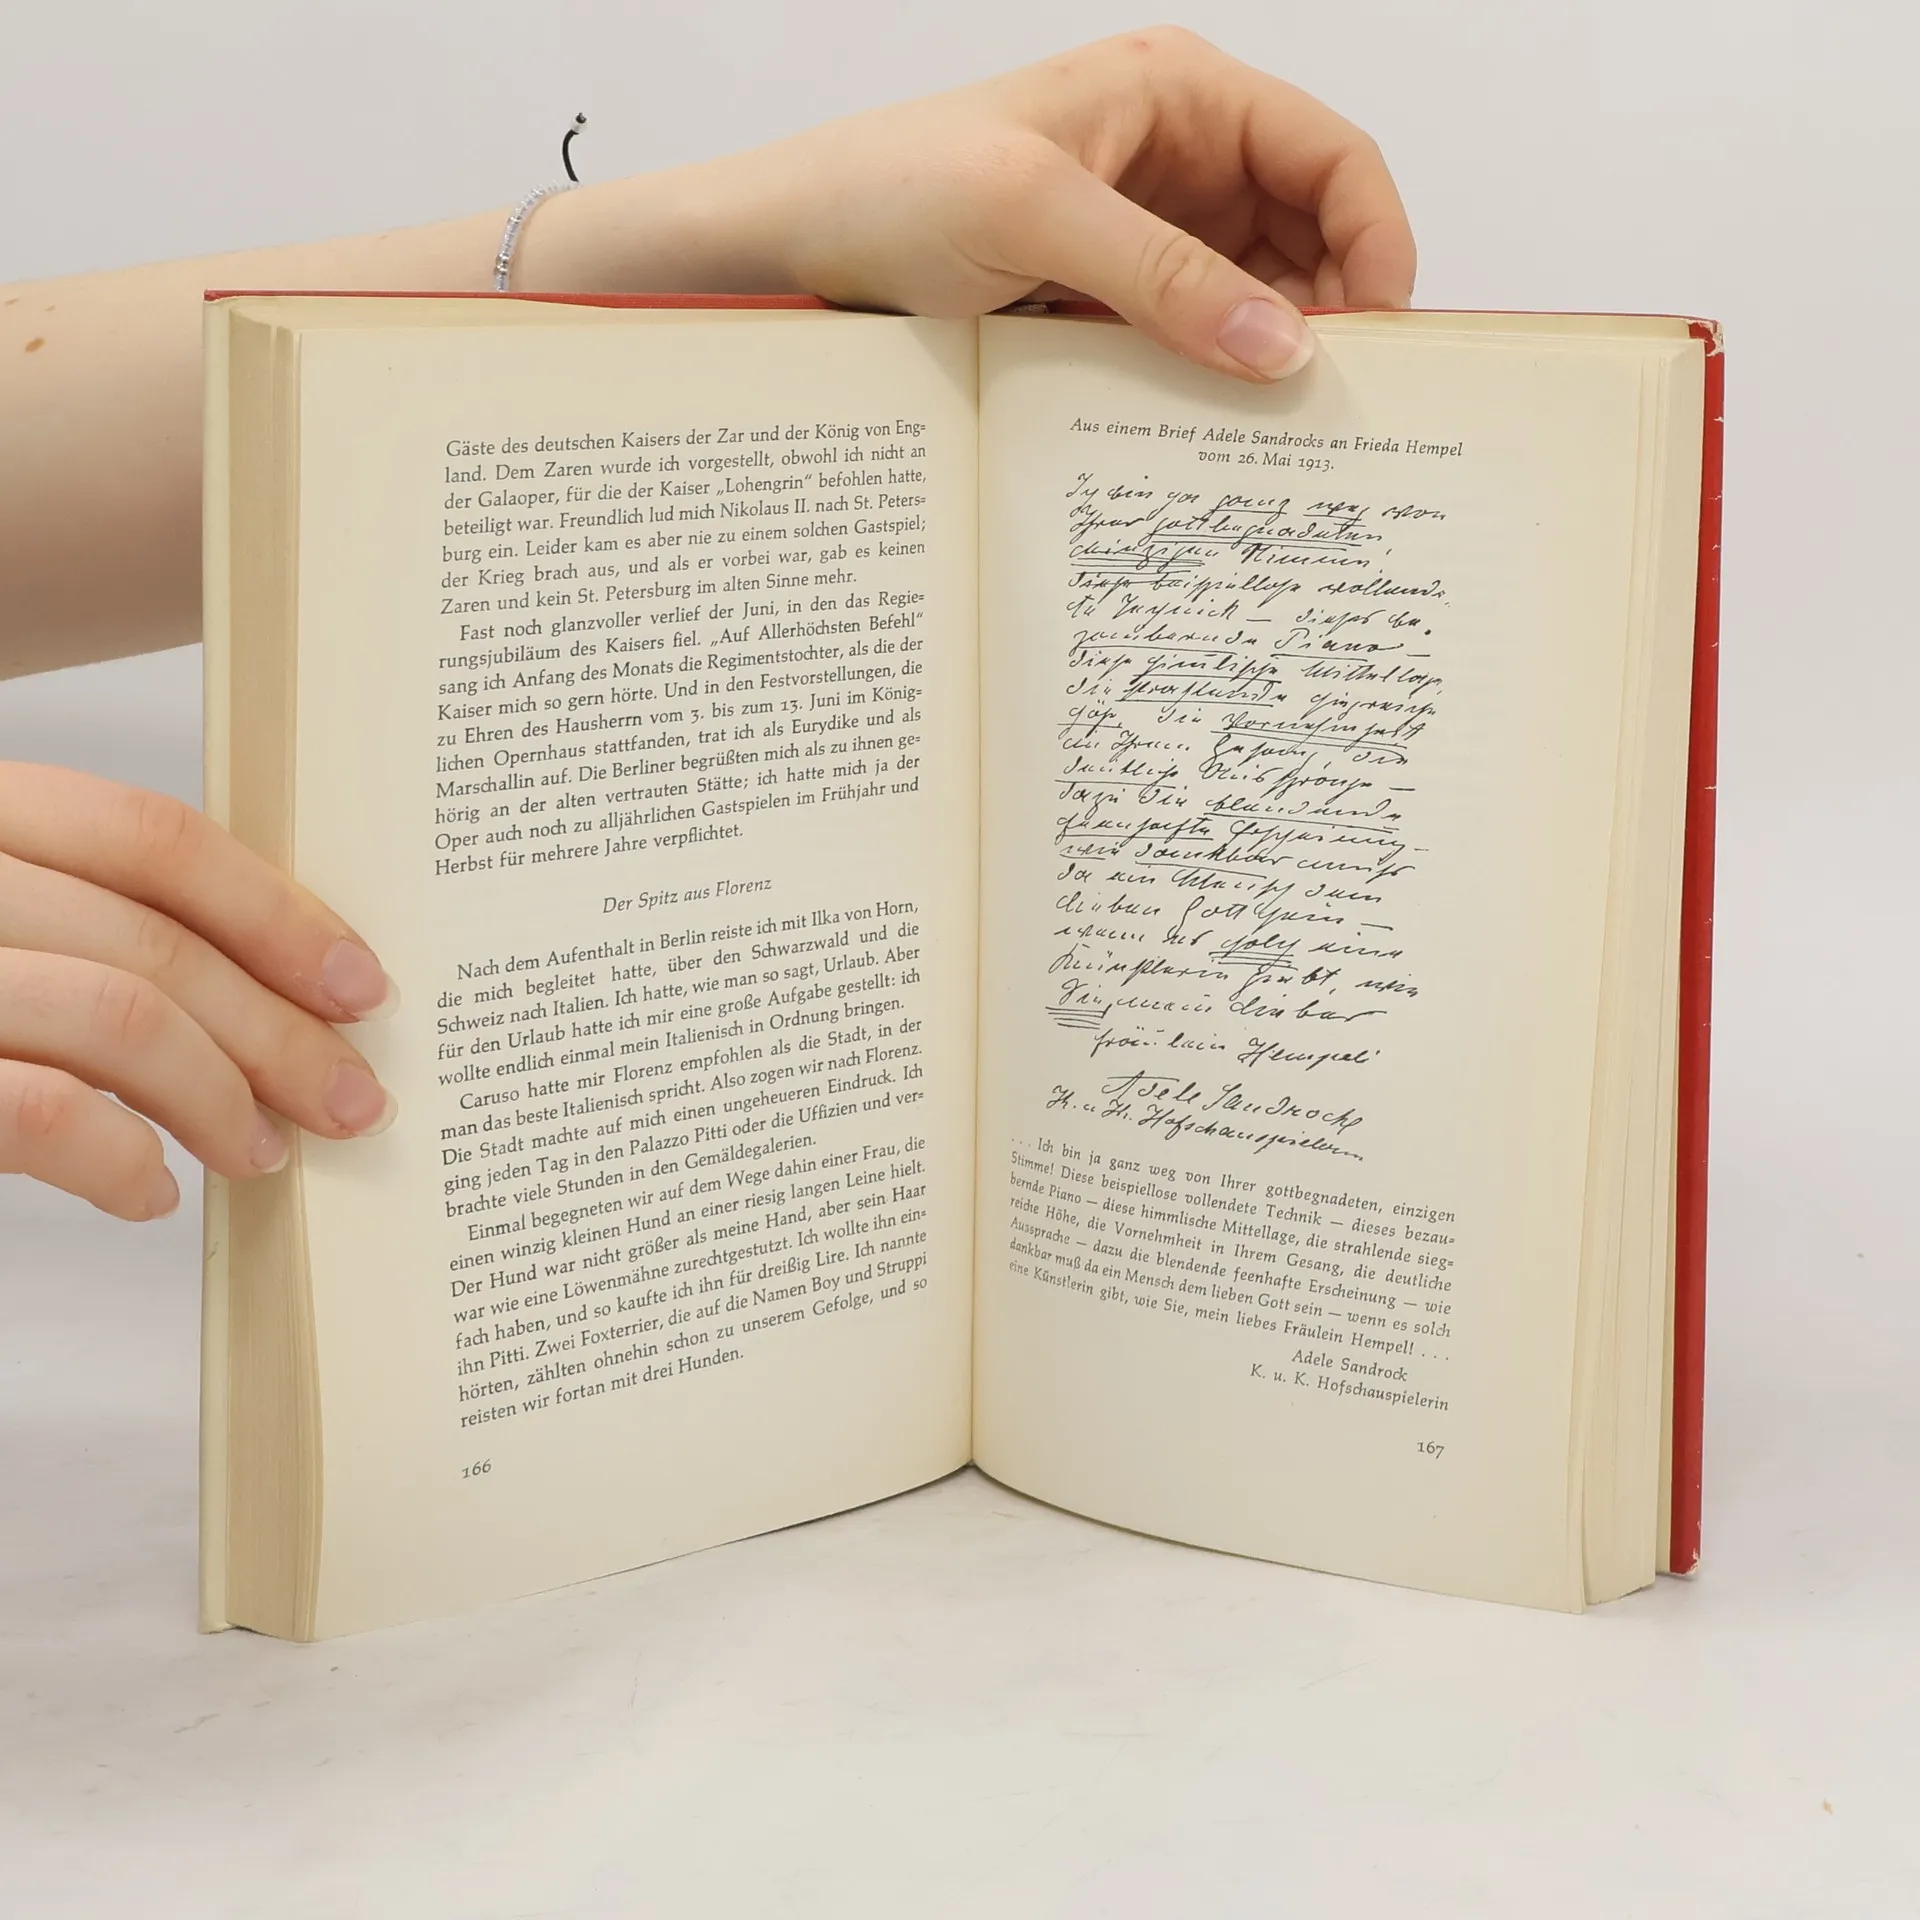 Gäste des deutschen Kaisers der Zar und der König von Eng=
land. Dem Zaren wurde ich vorgestellt, obwohl ich nicht an
der Galaoper, für die der Kaiser „Lohengrin“ befohlen hatte,
beteiligt war. Freundlich lud mich Nikolaus II. nach St. Peters=
burg ein. Leider kam es aber nie zu einem solchen Gastspiel;
der Krieg brach aus, und als er vorbei war, gab es keinen
Zaren und kein St. Petersburg im alten Sinne mehr.
Fast noch glanzvoller verlief der Juni, in den das Regie=
rungsjubiläum des Kaisers fiel. „Auf Allerhöchsten Befehl“
sang ich Anfang des Monats die Regimentstochter, als die der
Kaiser mich so gern hörte. Und in den Festvorstellungen, die
zu Ehren des Hausherrn vom 3. bis zum 13. Juni im König=
lichen Opernhaus stattfanden, trat ich als Eurydike und als
Marschallin auf. Die Berliner begrüßten mich als zu ihnen ge=
hörig an der alten vertrauten Stätte; ich hatte mich ja der
Oper auch noch zu alljährlichen Gastspielen im Frühjahr und
Herbst für mehrere Jahre verpflichtet.
Der Spitz aus Florenz
Nach dem Aufenthalt in Berlin reiste ich mit Ilka von Horn,
die mich begleitet hatte, über den Schwarzwald und die
Schweiz nach Italien. Ich hatte, wie man so sagt, Urlaub. Aber
für den Urlaub hatte ich mir eine große Aufgabe gestellt: ich
wollte endlich einmal mein Italienisch in Ordnung bringen.
Caruso hatte mir Florenz empfohlen als die Stadt, in der
man das beste Italienisch spricht. Also zogen wir nach Florenz.
Die Stadt machte auf mich einen ungeheueren Eindruck. Ich
ging jeden Tag in den Palazzo Pitti oder die Uffizien und ver=
brachte viele Stunden in den Gemäldegalerien.
Einmal begegneten wir auf dem Wege dahin einer Frau, die
einen winzig kleinen Hund an einer riesig langen Leine hielt.
Der Hund war nicht größer als meine Hand, aber sein Haar
war wie eine Löwenmähne zurechtgestutzt. Ich wollte ihn ein=
fach haben, und so kaufte ich ihn für dreißig Lire. Ich nannte
ihn Pitti. Zwei Foxterrier, die auf die Namen Boy und Struppi
hörten, zählten ohnehin schon zu unserem Gefolge, und so
reisten wir fortan mit drei Hunden.
166
Aus einem Brief Adele Sandrocks an Frieda Hempel
vom 26. Mai 1913.
Ich bin ja ganz weg von
Ihrer gottbegnadeten
einzigen Stimme!
Diese beispiellose vollende-
te Technik — dieses be-
zaubernde Piano —
diese himlische Mittellage,
die strahlende siegreiche
Höhe, die Vornehmheit
in Ihrem Gesang, die
deutliche Aussprache —
dazu die blendende
feenhafte Erscheinung —
wie dankbar muß
da ein Mensch dem
lieben Gott sein —
wenn es solch eine
Künstlerin giebt, wie
Sie, mein liebes
Fräulein Hempel!
Adele Sandrock
K. u. K. Hofschauspielerin
. . . Ich bin ja ganz weg von Ihrer gottbegnadeten, einzigen
Stimme! Diese beispiellose vollendete Technik — dieses bezau=
bernde Piano — diese himmlische Mittellage, die strahlende sieg=
reiche Höhe, die Vornehmheit in Ihrem Gesang, die deutliche
Aussprache — dazu die blendende feenhafte Erscheinung — wie
dankbar muß da ein Mensch dem lieben Gott sein — wenn es solch
eine Künstlerin gibt, wie Sie, mein liebes Fräulein Hempel! . . .
Adele Sandrock
K. u. K. Hofschauspielerin
167